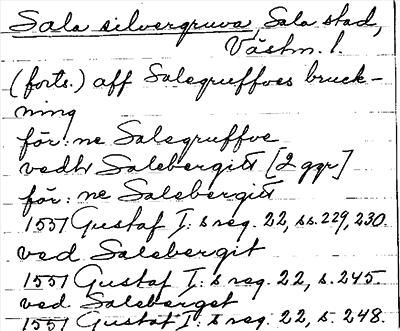 Sala silvergruva, Sala stad,
Västm. l.
(forts.) aff Salegruffves bruck-
ning
för: ne Salegruffve
vedh Salebergitt [2 ggr]
för: ne Salebergitt
1551 Gustaf I: s reg. 22, ss. 229, 230.
ved Salebergit
1551 Gustaf I: s reg. 22, s. 245.
ved Saleberget
1551 Gustaf I: s reg. 22, s. 248.